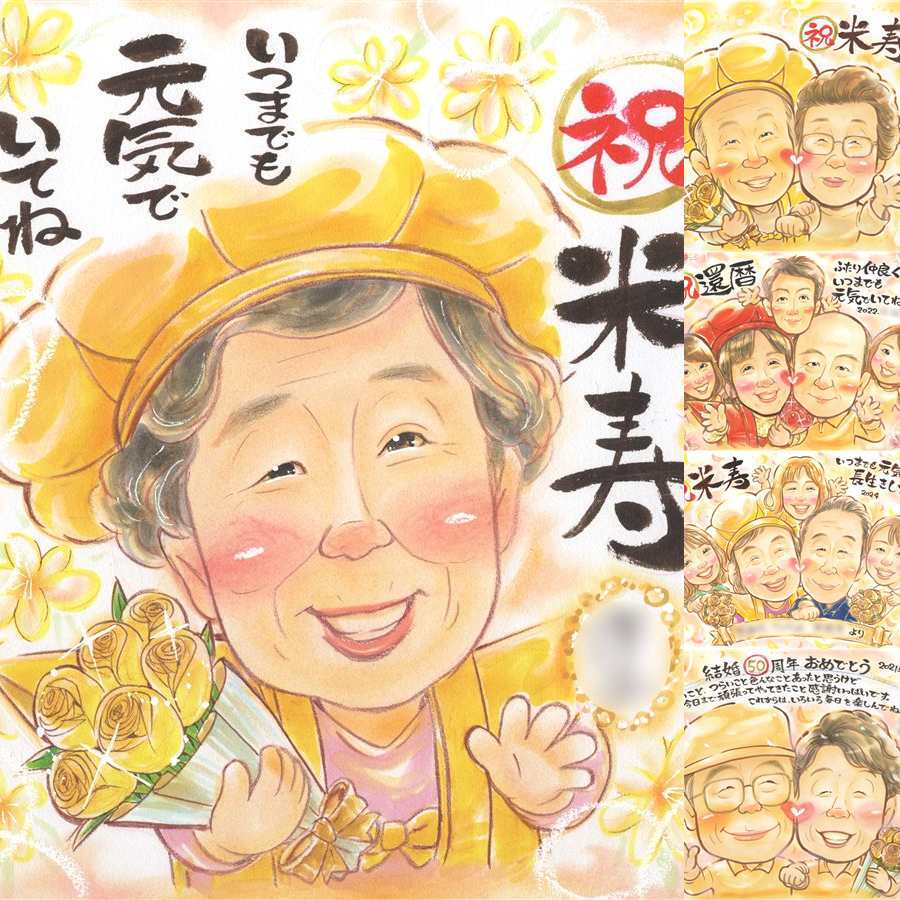 祝
米寿
いつまでも
元気で
いてね
祝 米寿
還暦
ふたり仲良く
いつまでも
元気でいてね
2022.
米寿
いつまでも元気
長生きし
2024
より
結婚50周年 おめでとう 2021
つらいこと色んなことあったと思うけど
今日まで頑張ってやってきたこと感謝いっぱいです。
これからは、いろいろ毎日を楽しんでね